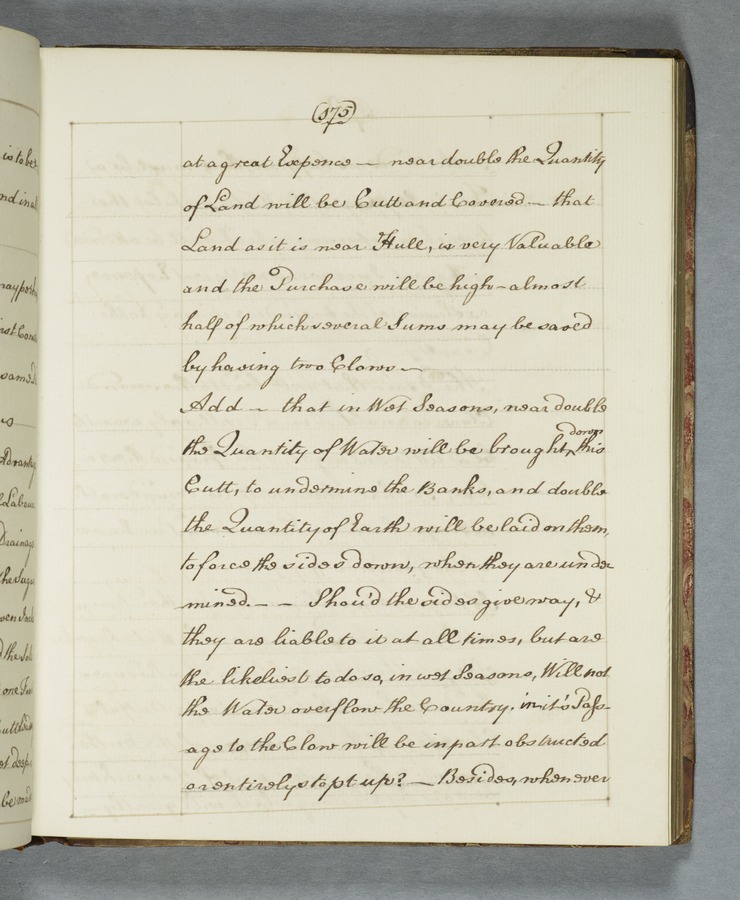 (175)
at a great Expence — near double the Quantity
of Land will be Cutt and Covered — that
Land as it is near Hull, is very Valuable
and the Purchase will be high — almost
half of which several Sums may be saved
by having two Clows —
Add — that in Wet Seasons, near double
the Quantity of Water will be brought down this
Cutt, to undermine the Banks, and double
the Quantity of Earth will be laid on them,
to force the sides down, when they are under
mined. — — Shou'd the sides give way, &
they are liable to it at all times, but are
the likeliest to do so, in wet Seasons, Will not
the Water overflow the Country, in it's Pass-
age to the Clow will be in part obstructed
or entirely stopt up? — Besides, whenever
is to be
may
same
is
Labour
Drainage
the
one
be made